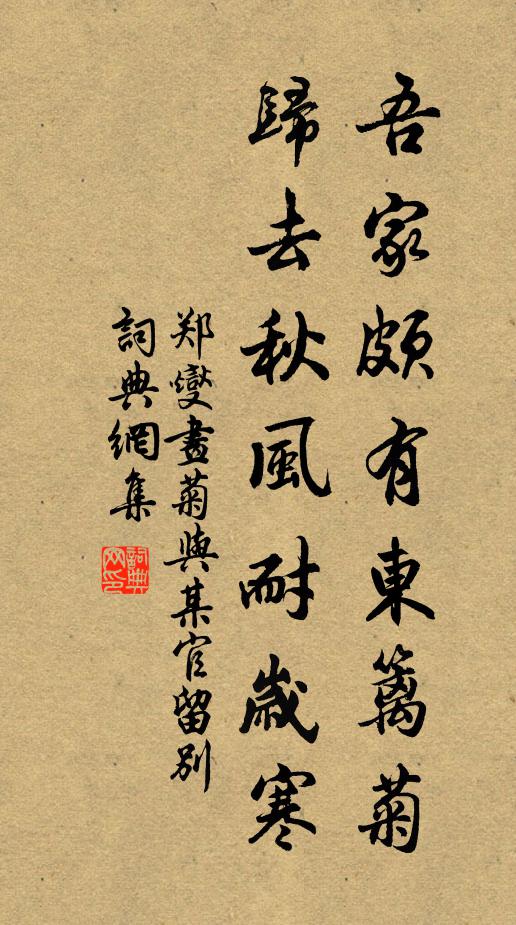 吾家頗有東籬菊
歸去秋風耐歲寒
郑燮畫菊與某官留别
詞典網集
詞典
网印